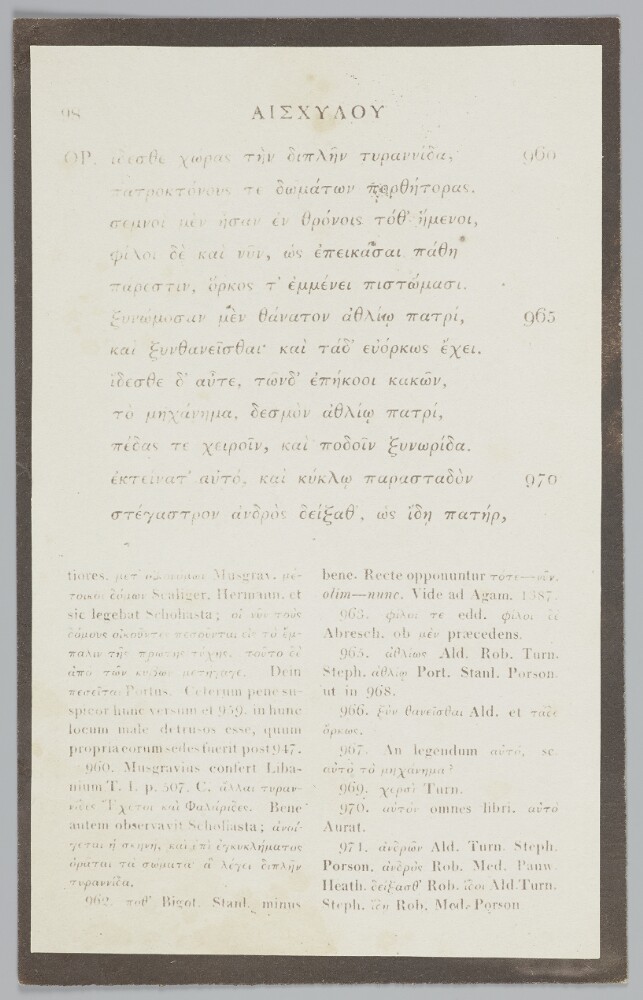 98
ΑΙΣΧΥΛΟΥ
ΟΡ. ἴδεσθε χώρας τὴν διπλῆν τυραννίδα, 960
πατροκτόνους τε δωμάτων πορθήτορας.
σεμνοὶ μὲν ἦσαν ἐν θρόνοις τόθ' ἥμενοι,
φίλοι δὲ καὶ νῦν, ὡς ἐπεικάσαι πάθη
πάρεστιν, ὅρκος τ' ἐμμένει πιστώμασι.
ξυνώμοσαν μὲν θάνατον ἀθλίῳ πατρί, 965
καὶ ξυνθανεῖσθαι· καὶ τάδ' εὐόρκως ἔχει.
ἴδεσθε δ' αὖτε, τῶνδ' ἐπήκοοι κακῶν,
τὸ μηχάνημα, δεσμὸν ἀθλίῳ πατρί,
πέδας τε χειροῖν, καὶ ποδοῖν ξυνωρίδα.
ἐκτείνατ' αὐτό, καὶ κύκλῳ παρασταδὸν 970
στέγαστρον ἀνδρὸς δείξαθ', ὡς ἴδῃ πατήρ,
tiores. μετ' Musgrav. μέ-
τοικοι δόμων Scaliger. Hermann. et
sic legebat Scholiasta; οἱ νῦν τοὺς
δόμους οἰκοῦντες πεσοῦνται εἰς τὸ ἔμ-
παλιν τῆς πρώτης τύχης. τοῦτο δὲ
ἀπὸ τῶν κύβων μετήγαγε. Dein
πεσεῖται Portus. Ceterum pene su-
spicor hunc versum et 959. in hunc
locum male detrusos esse, quum
propria eorum sedes fuerit post 947.
960. Musgravius confert Liba-
nium T. I. p. 507. C. ἄλλαι τυραν-
νίδες Ἔχετοι καὶ Φαλάριδες. Bene
autem observavit Scholiasta; ἀνοί-
γεται ἡ σκηνή, καὶ ἐπὶ ἐγκυκλήματος
ὁρᾶται τὰ σώματα· ἃ λέγει διπλῆν
τυραννίδα.
962. ποθ' Bigot. Stanl. minus
bene. Recte opponuntur τότε—νῦν.
olim—nunc. Vide ad Agam. 1387.
963. φίλοι τε edd. φίλοι δὲ
Abresch. ob μὲν præcedens.
965. ἀθλίως Ald. Rob. Turn.
Steph. ἀθλίῳ Port. Stanl. Porson.
ut in 968.
966. ξὺν θανεῖσθαι Ald. et τάδε
ὅρκως.
967. An legendum αὐτό, sc.
αὐτὸ τὸ μηχάνημα?
969. χερσὶ Turn.
970. αὐτὸν omnes libri. αὐτὸ
Aurat.
971. ἀνδρῶν Ald. Turn. Steph.
Porson. ἀνδρὸς Rob. Med. Pauw.
Heath. δείξασθ' Rob. ἴδοι Ald. Turn.
Steph. ἴδῃ Rob. Med. Porson